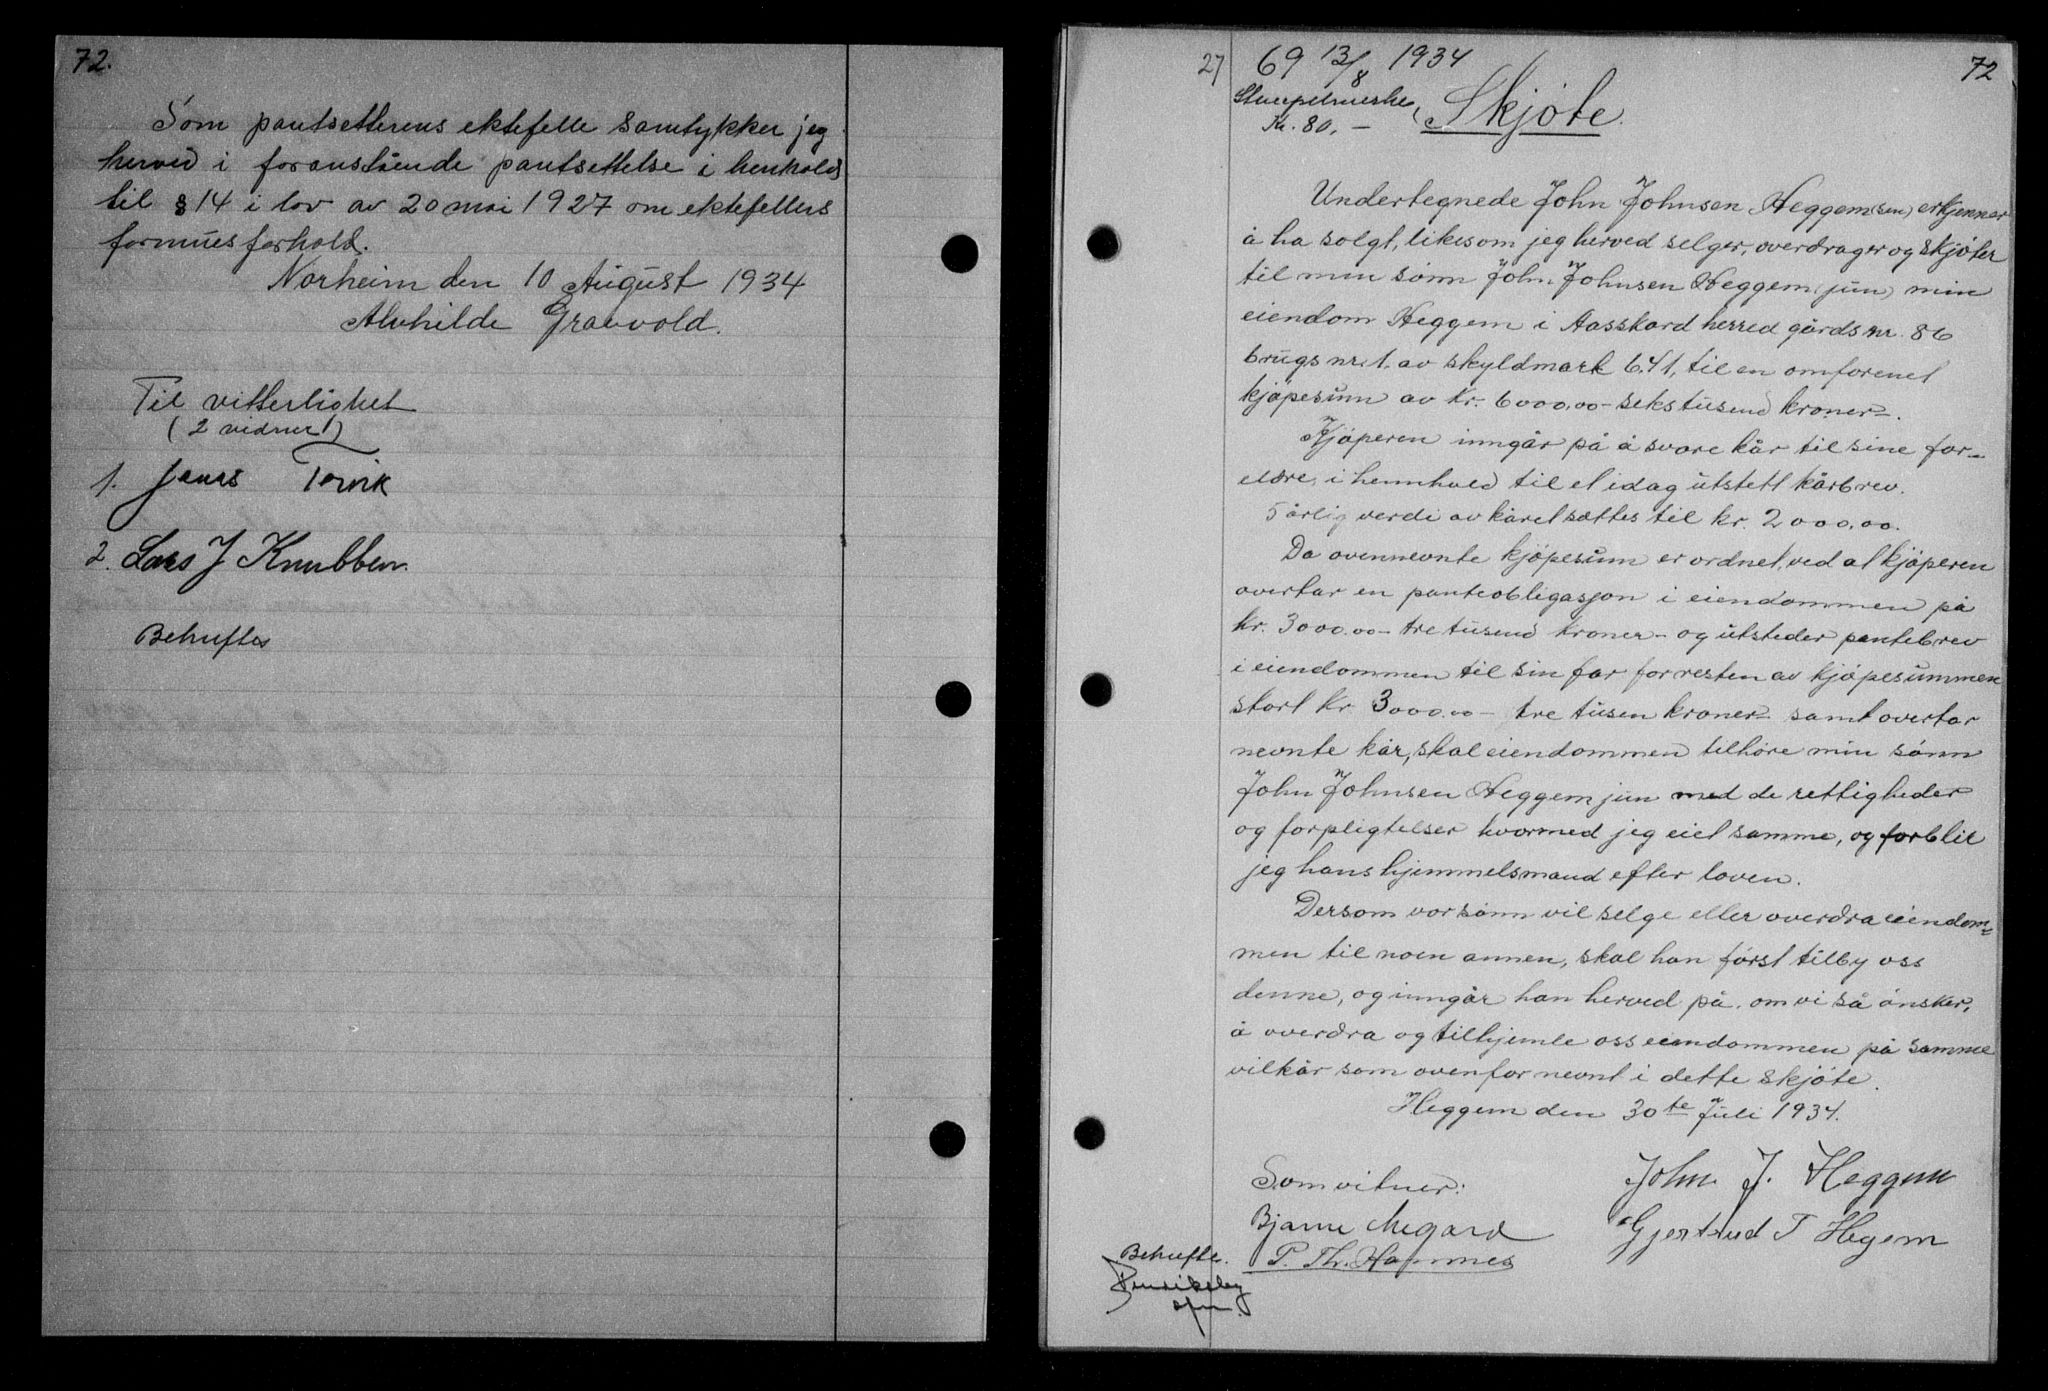 72.
Som pantsetterens ektefelle samtykker jeg
herved i foranstående pantsettelse i henhold
til § 14 i lov av 20 mai 1927 om ektefellers
formuesforhold.
Norheim den 10 August 1934
Alvhilde Gravvold.
Til vitterlighet
(2 vidner!)
1. Jens Torvik
2. Lars J Knubben.
Behuftes
27 69 13/8 1934 72
Stempelmerke
Kr. 80.-
Skjøte.
Undertegnede John Johnsen Heggem (sen) erkjenner
å ha solgt, likesom jeg herved selger, overdrager og skjøter
til min sønn John Johnsen Heggem (jun) min
eiendom Heggem i Aasskard herred gårds nr. 86
brugs nr. 1. av skyldmark 6.41, til en omforenet
kjøpesum av kr. 6000,00 - sekstusend kroner -.
Kjøperen inngår på å svare kår til sine for-
eldre, i hennhold til et idag utstett kårbrev.
5 årlig verdi av kåret sættes til kr. 2000,00.
Da ovennevnte kjøpesum er ordnet, ved at kjøperen
overtar en panteobligasjon i eiendommen på
kr. 3000.00 - tre tusend kroner - og utsteder pantebrev
i eiendommen til sin far for resten av kjøpesummen
stort kr. 3000.00 - tre tusen kroner - samt overtar
nevnte kår, skal eiendommen tilhøre min sønn
John Johnsen Heggem jun med de rettigheder
og forpligtelser hvormed jeg eiet samme, og forblir
jeg hans hjemmelsmand efter loven.
Dersom vor sønn vil selge eller overdra eiendom-
men til noen annen, skal han først tilby oss
denne, og inngår han herved på, om vi så ønsker,
å overdra og tilhjemle oss eiendommen på samme
vilkår som ovenfor nevnt i dette skjøte.
Heggem den 30te Juli 1934.
Som vitner: John J. Heggem
Bjarne Megard Gjertrud T Hegem
P. Th. Hammes
Behufte.